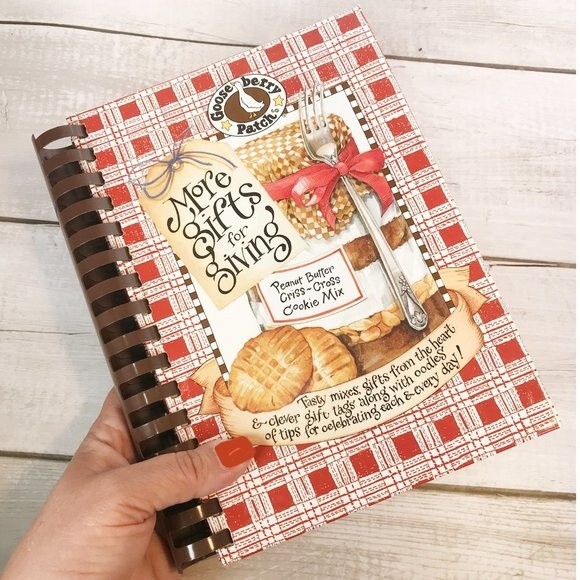 Gooseberry
Patch
More
gifts
for
giving
Peanut Butter
Criss-Cross
Cookie Mix
Tasty mixes, gifts from the heart
& clever gift tags along with oodles
of tips for celebrating each & every day!